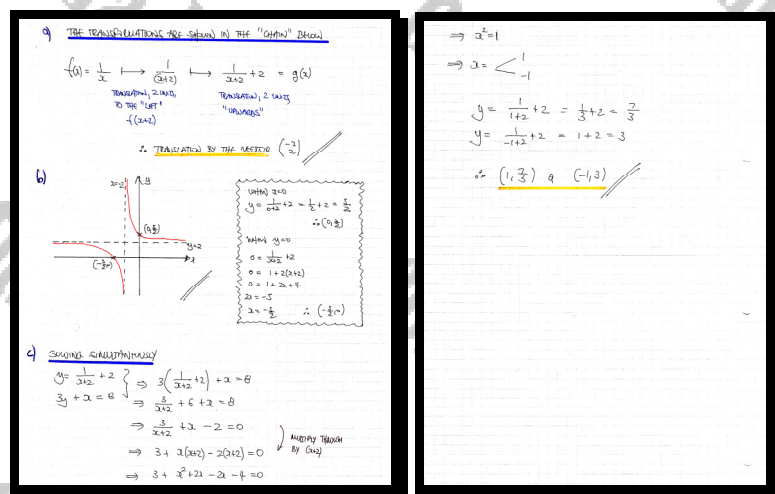 a) THE TRANSFORMATIONS ARE SHOWN IN THE "CHAIN" BELOW
f(x) = 1/x ⟼ 1/(x+2) ⟼ 1/(x+2) + 2 = g(x)
TRANSLATION, 2 UNITS, TO THE "LEFT" f(x+2)
TRANSLATION, 2 UNITS, "UPWARDS"
∴ TRANSLATION BY THE VECTOR (-2 2)
b)
x=-2
y
(0,5/2)
y=2
x
(-5/2,0)
WHEN x=0
y = 1/(0+2) + 2 = 1/2 + 2 = 5/2
∴ (0,5/2)
WHEN y=0
0 = 1/(x+2) + 2
0 = 1 + 2(x+2)
0 = 1 + 2x + 4
2x = -5
x = -5/2 ∴ (-5/2,0)
c) SOLVING SIMULTANEOUSLY
y = 1/(x+2) + 2
3y + x = 8
⇒ 3(1/(x+2) + 2) + x = 8
⇒ 3/(x+2) + 6 + x = 8
⇒ 3/(x+2) + x - 2 = 0
MULTIPLY THROUGH BY (x+2)
⇒ 3 + x(x+2) - 2(x+2) = 0
⇒ 3 + x² + 2x - 2x - 4 = 0
⇒ x² = 1
⇒ x = < 1 -1
y = 1/(1+2) + 2 = 1/3 + 2 = 7/3
y = 1/(-1+2) + 2 = 1 + 2 = 3
∴ (1, 7/3) & (-1, 3)